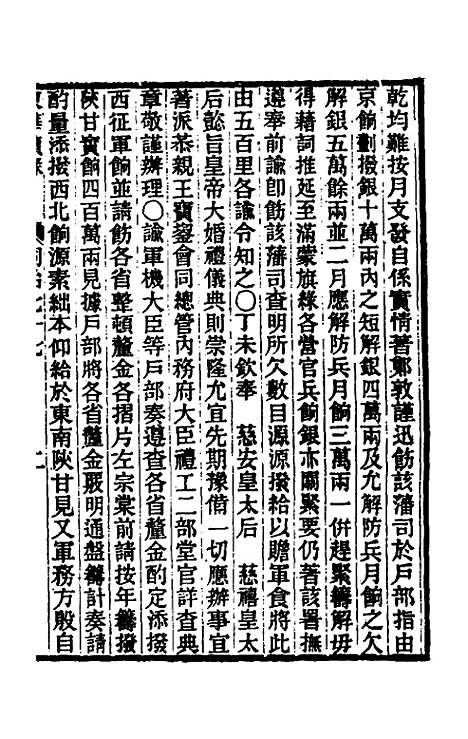 乾均難按月支發自係實情著鄭敦謹迅飭該藩司於戶部指由
京餉劃撥銀十萬兩內之短解銀四萬兩及允解防兵月餉之欠
解銀五萬餘兩並二月應解防兵月餉三萬兩一併趕緊籌解毋
得藉詞推延至滿蒙旗綠各營官兵餉銀亦關緊要仍著該署撫
遵奉前諭卽飭該藩司查明所欠數目源源撥給以贍軍食將此
由五百里各諭令知之〇丁未欽奉　慈安皇太后　慈禧皇太
后懿旨皇帝大婚禮儀典則崇隆允宜先期豫備一切應辦事宜
著派恭親王寶鋆會同總管內務府大臣禮工二部堂官詳查典
章敬謹辦理〇諭軍機大臣等戶部奏遵查各省釐金酌定添撥
西征軍餉並請飭各省整頓釐金各摺片左宗棠前請按年籌撥
陝甘實餉四百萬兩見據戶部將各省釐金嚴明通盤籌計奏請
酌量添撥西北餉源素絀本仰給於東南陝甘見又軍務方殷自
同治七十七　二